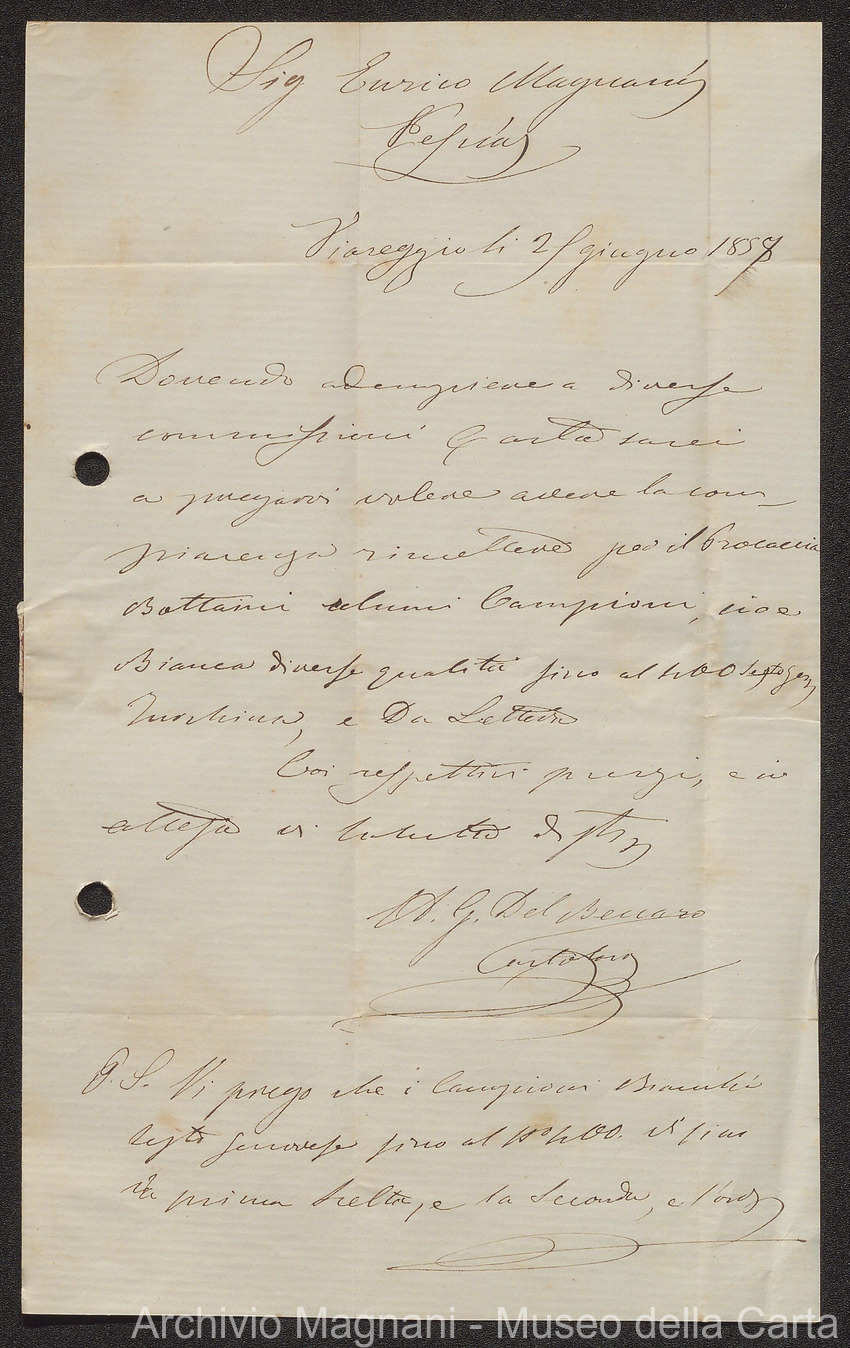 Sig Enrico Magnani
Pescia
Viareggio li 25 giugno 1857
Dovendo adempiere a diverse
commissioni Carta sarei
a pregarvi volere avere la com-
piacenza rimettere per il Procaccia
Bottaini alcuni Campioni, cioe
Bianca diverse qualità fino al
Turchina, e Da Lettere
Coi respettivi prezzi, e in
attesa vi saluto
A. G. Del Beccaro
Cartolaro
P. S. Vi prego che i Campioni Bianchi
sesto genovese fino al vi sia
la prima scelta, e la seconda, e
Archivio Magnani - Museo della Carta